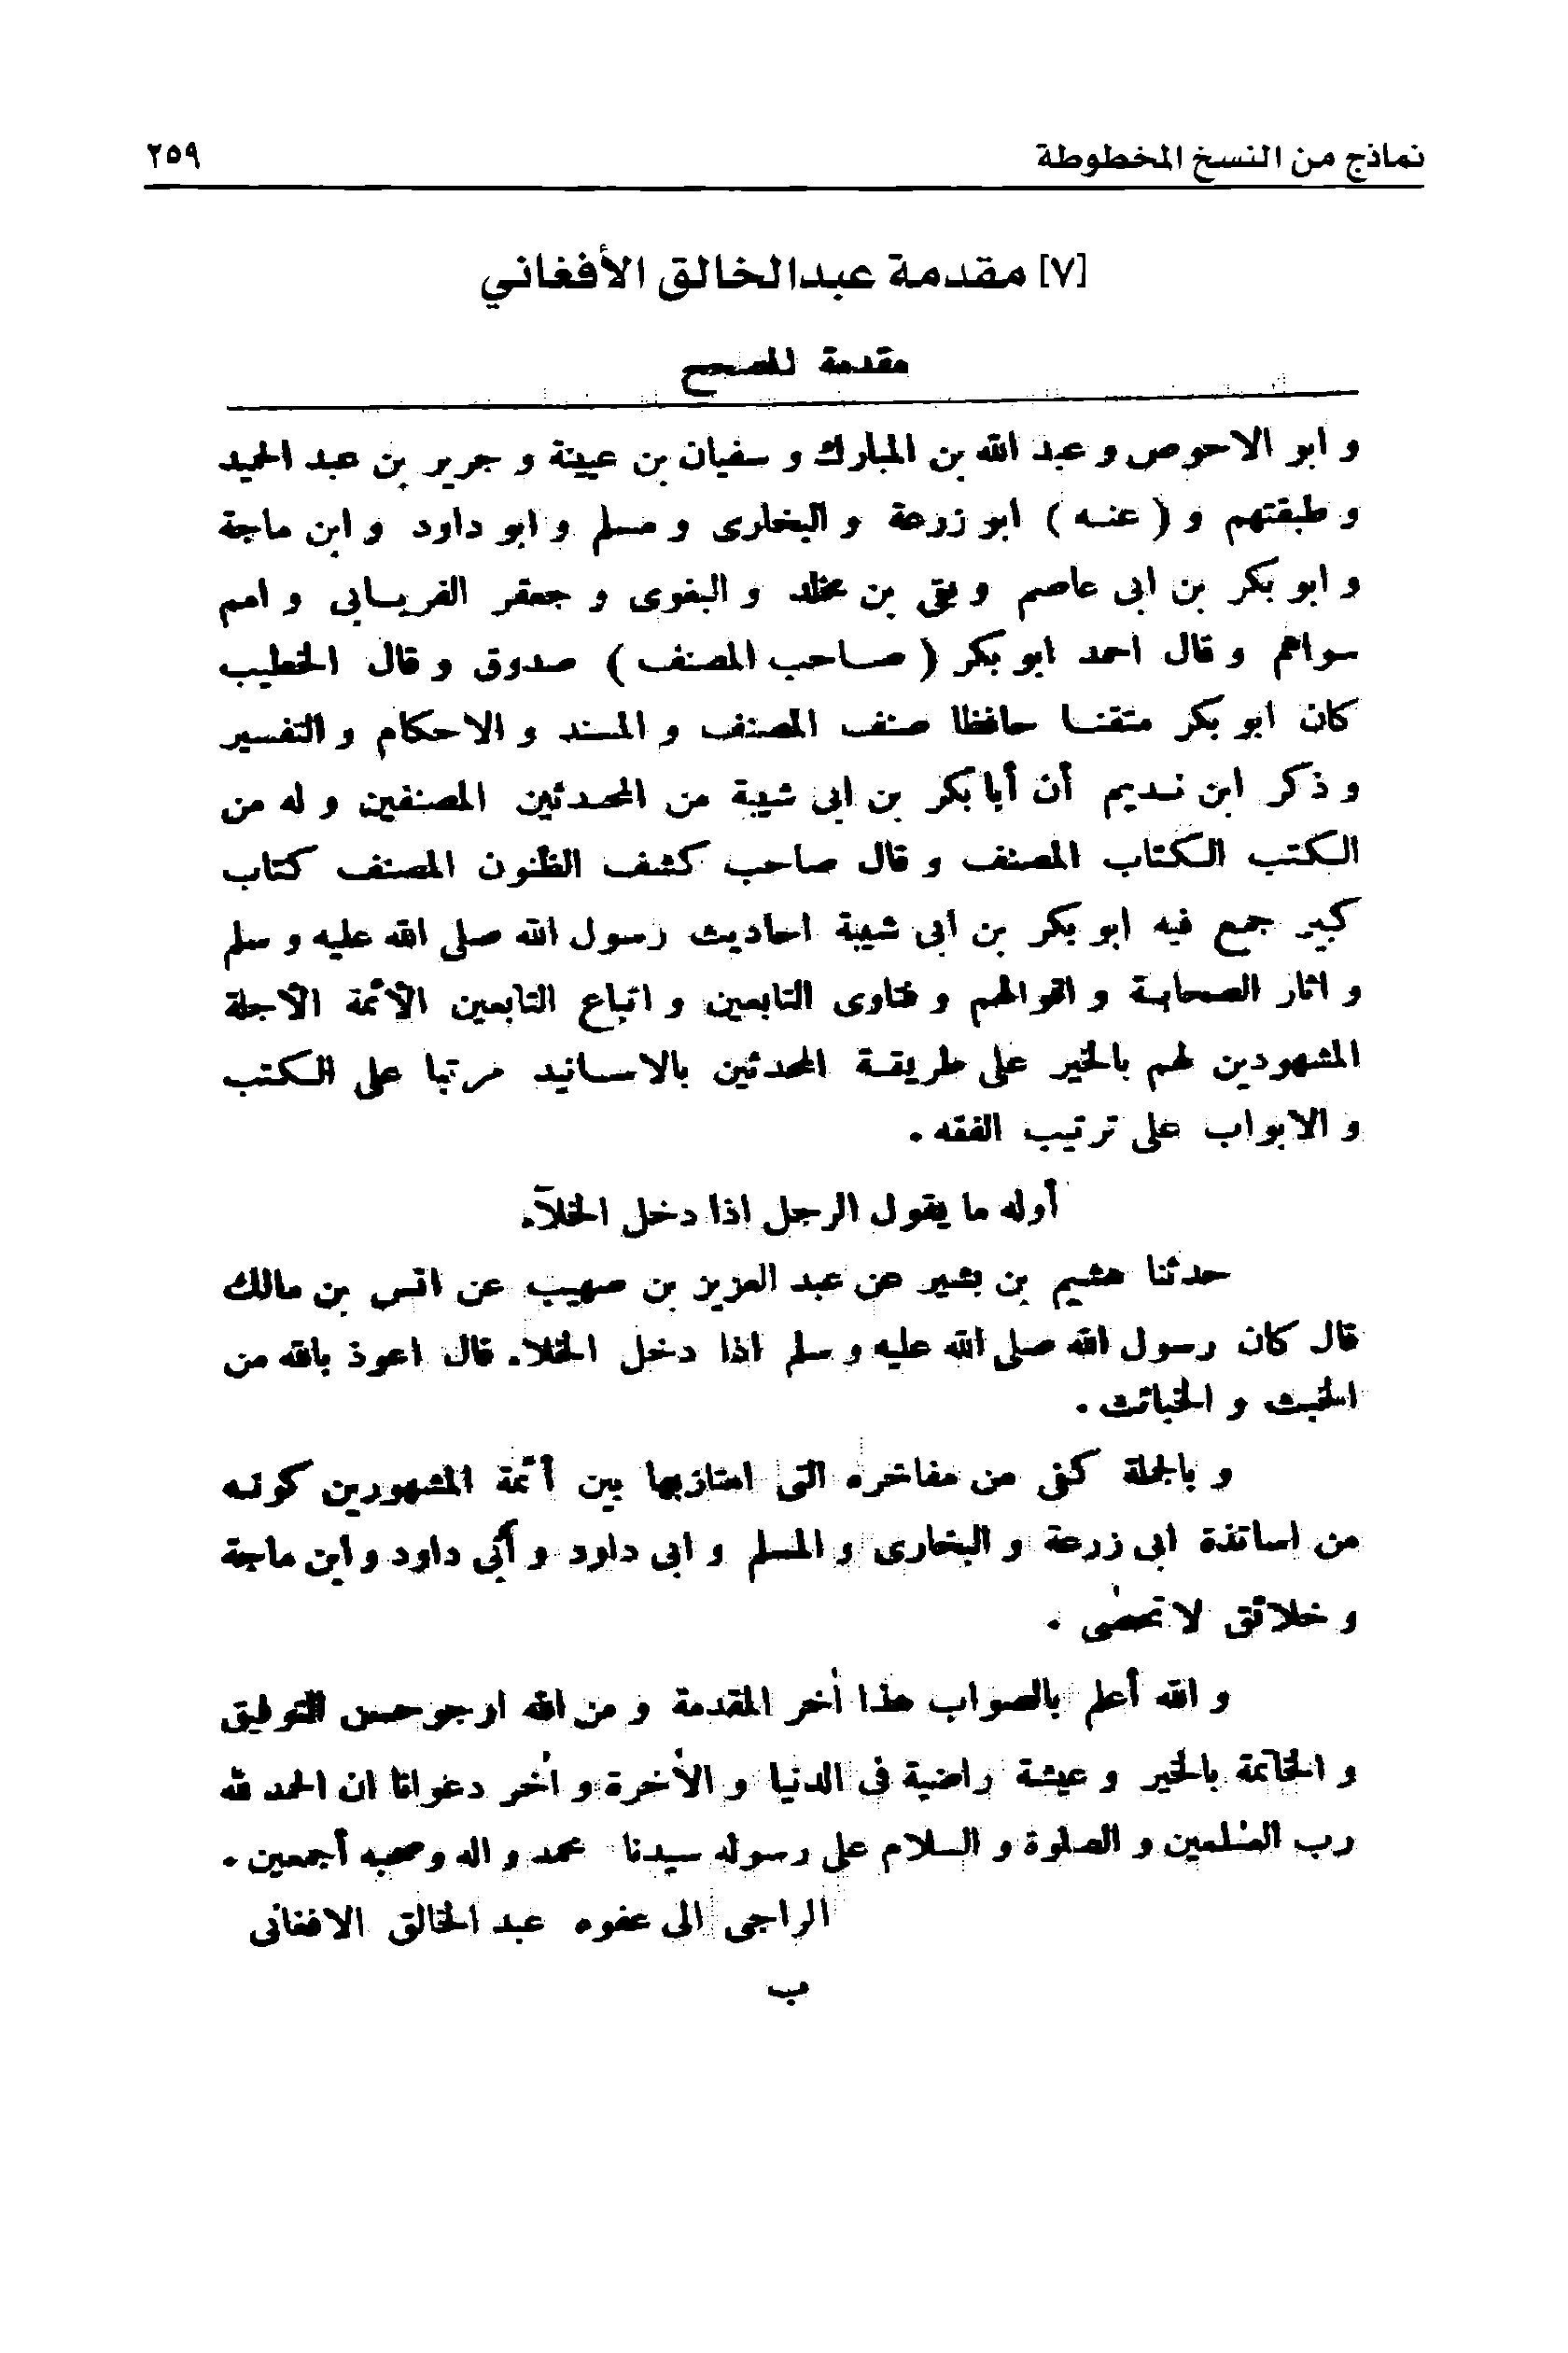 نماذج من النسخ المخطوطة
٢٥٩
[٧] مقدمة عبدالخالق الأفغاني
مقدمة للصحح
و ابو الاحوص و عبد الله بن المبارك و سفيان بن عيينة و جرير بن عبد الحميد
و طبقتهم و ( عنه ) ابو زرعة و البخارى و مسلم و ابو داود و ابن ماجة
و ابو بكر بن ابى عاصم و بقى بن مخلد و البغوى و جعفر الفريابى و امم
سواهم و قال احمد ابو بكر ( صاحب المصنف ) صدوق و قال الخطيب
كان ابو بكر متقنا حافظا صنف المصنف و المسند و الاحكام و التفسير
و ذكر ابن نديم أن أبا بكر بن ابى شيبة من المحدثين المصنفين و له من
الكتب الكتاب المصنف و قال صاحب كشف الظنون المصنف كتاب
كبير جمع فيه ابو بكر بن ابى شيبة احاديث رسول الله صلى الله عليه و سلم
و اثار الصحابة و اقوالهم و فتاوى التابعين و اتباع التابعين الأئمة الأجلة
المشهودين لهم بالخير على طريقة المحدثين بالاسانيد مرتبا على الكتب
و الابواب على ترتيب الفقه .
أوله ما يقول الرجل اذا دخل الخلآء
حدثنا هشيم بن بشير عن عبد العزيز بن صهيب عن انس بن مالك
قال كان رسول الله صلى الله عليه و سلم اذا دخل الخلاء قال اعوذ بالله من
الخبث و الخبائث .
و بالجملة كفى من مفاخره التى امتاز بها بين أئمة المشهورين كونه
من اساتذة ابى زرعة و البخارى و المسلم و ابى داود و أبى داود و ابن ماجة
و خلائق لا تحصى .
و الله أعلم بالصواب هذا أخر المقدمة و من الله ارجو حسن التوفيق
و الخاتمة بالخير و عيشة راضية فى الدنيا و الأخرة و أخر دعوانا ان الحمد لله
رب العٰلمين و الصلوة و السلام على رسوله سيدنا محمد و اله و صحبه أجمعين .
الراجى الى عفوه عبد الخالق الافغانى
ب